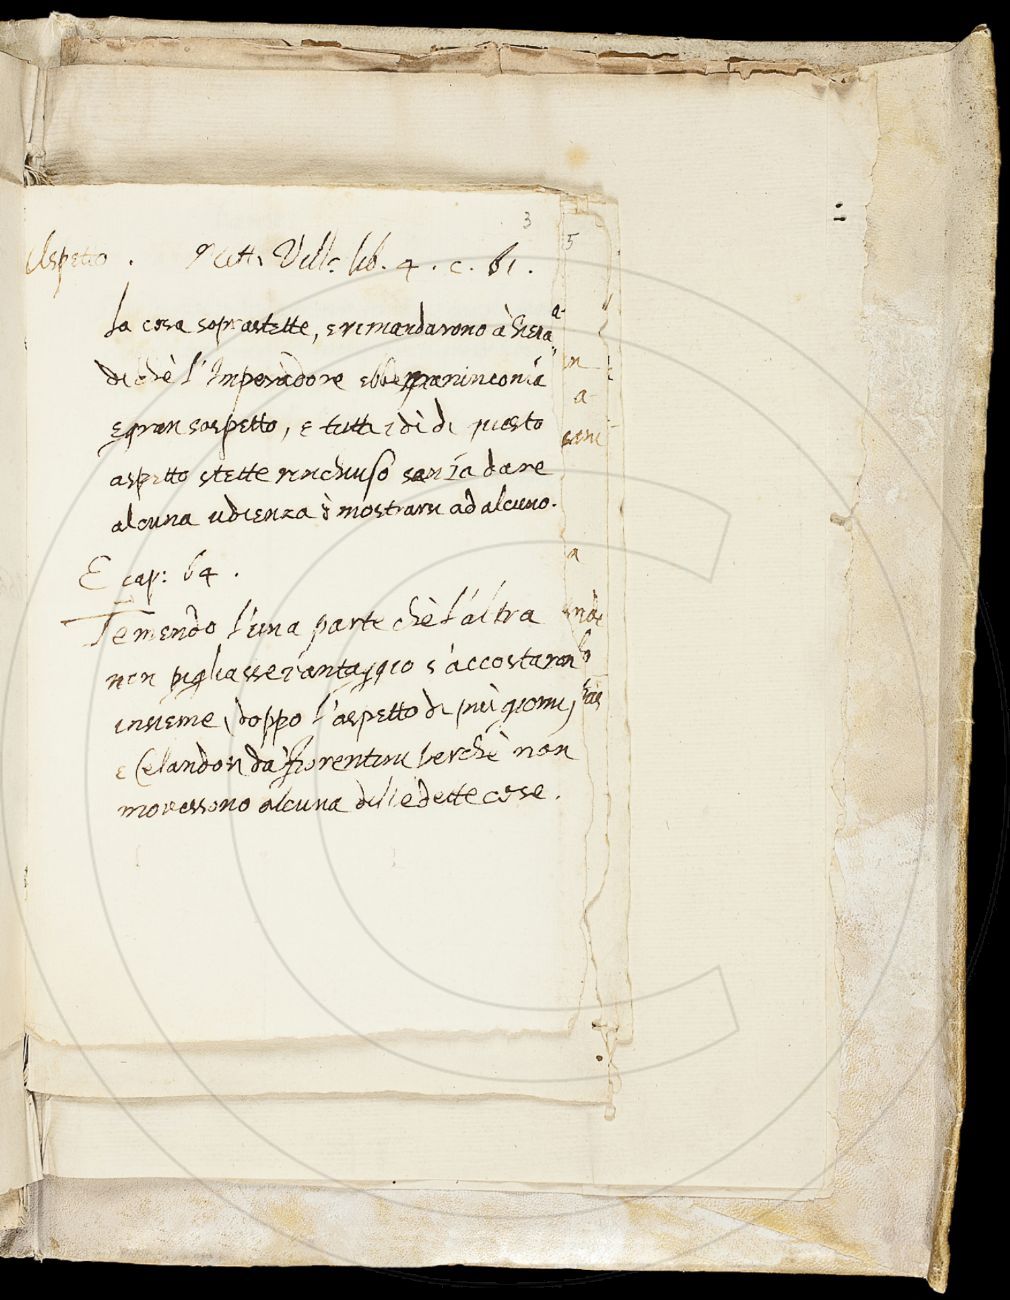 3
5
Aspetto . Matt. Vill. lib. 4 . c. 61 .
La cosa soprastette, e rimandarono à Siena
di chè l'Imperadore ebbe maninconia
e gran sospetto, e tutti i dì di questo
aspetto stette rinchiuso sanza dare
alcuna udienza ò mostrarsi ad alcuno.
E cap: 64 .
Temendo l'una parte chè l'altra
non pigliasse vantaggio s'accostaron
insieme, doppo l'aspetto di più giorni,
e celandosi da fiorentini perchè non
movessono alcuna dille dette cose .